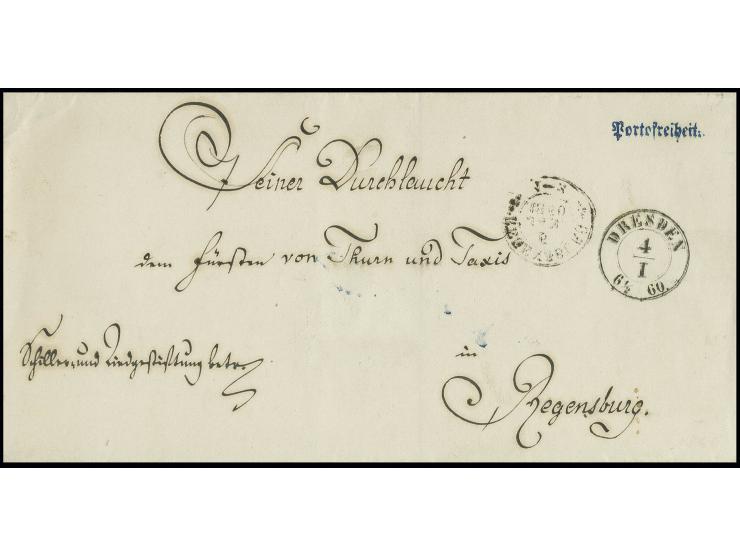 Portofreiheit.
Seiner Durchlaucht
dem Fürsten von Thurn und Taxis
DRESDEN
4
I
6½ 60
Schiller, und betr.
in
Regensburg.